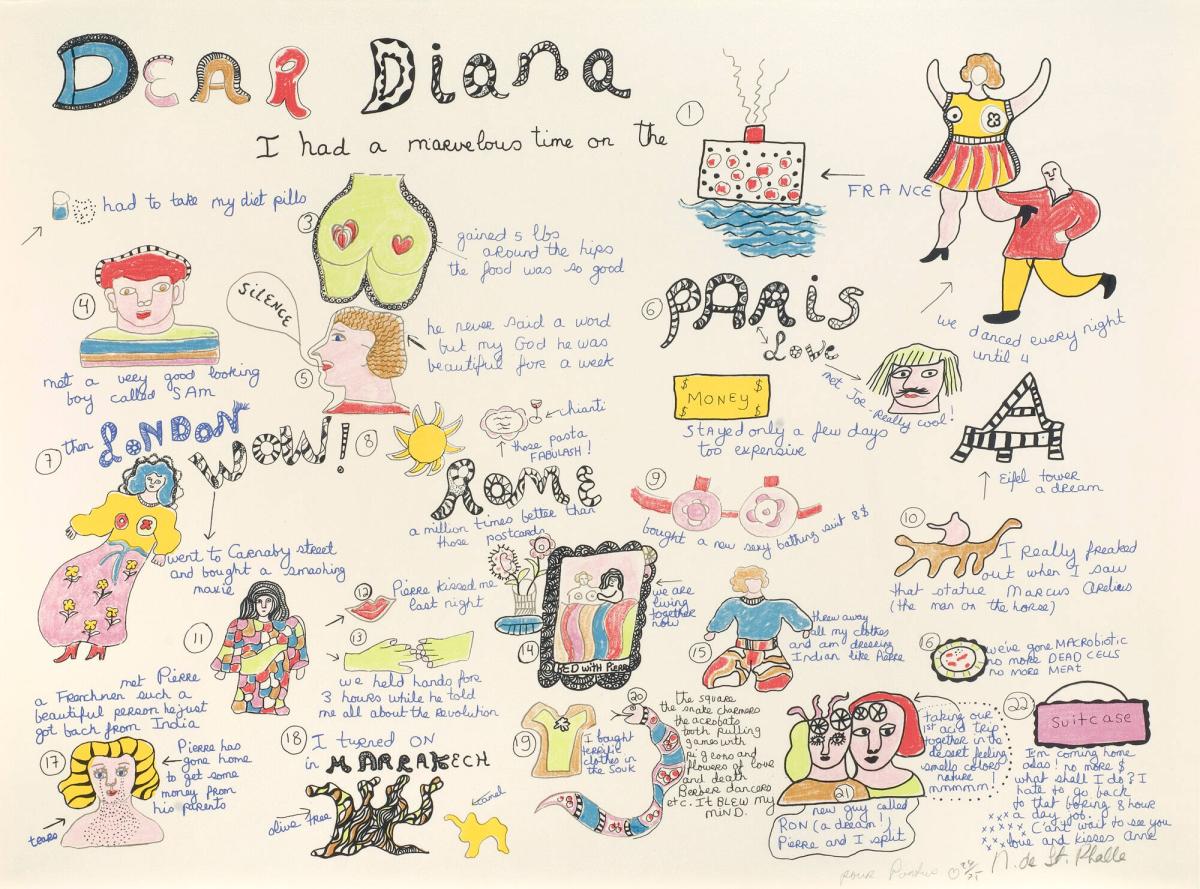 DEAR Diana
I had a marvelous time on the
1
FRANCE
we danced every night
until 4
had to take my diet pills
3
gained 5 lbs
around the hips
the food was so good
4
met a very good looking
boy called SAm
SiLENCE
5
he never said a word
but my God he was
beautiful fore a week
6
PARiS
Love
met Joe - Really cool!
$ $
MONEY
$ $
Stayed only a few days
too expensive
A
Eifel tower
a dream
7
then LONDON
WOW!
went to Carnaby street
and bought a smashing
maxie
8
chianti
those pasta
FABULASH!
ROME
a million times better than
those postcards
9
bought a new sexy bathing suit 8$
10
I really freaked
out when I saw
that statue Marcus Arelius
(the man on the horse)
11
met Pierre
a Frenchmen such a
beautiful person he just
got back from India
12
Pierre kissed me
last night
13
we held hands for
3 hours while he told
me all about the Revolution
14
BED with Pierre
we are
living
together
now
15
threw away
all my clothes
and am dressing
Indian like Pierre
16
we've gone MACRObiotic
no more DEAD CELLS
no more MEAt
17
Pierre has
gone home
to get some
money from
his parents
tears
18
I turned ON
in MARRAKECH
olive tree
camel
19
I bought
terrific
clothes in
the Souk
20
the square
the snake charmers
the acrobats
tooth pulling
games with
pigeons and
flowers of love
and death
Berber dancers
etc. It BLEW my
miND.
21
new guy called
RON (a dream!)
Pierre and I split
taking our
1st acid trip
together in the
desert feeling
smells colors
nature
mmmmm!
22
Suitcase
I'm coming home
alas! no more $
what shall I do? I
hate to go back
to that boring 8 hour
a day job.
Can't wait to see you
love and kisses Anne
xxx
xxxxx
xxx
pour Pontus
24/75
N. de St. Phalle